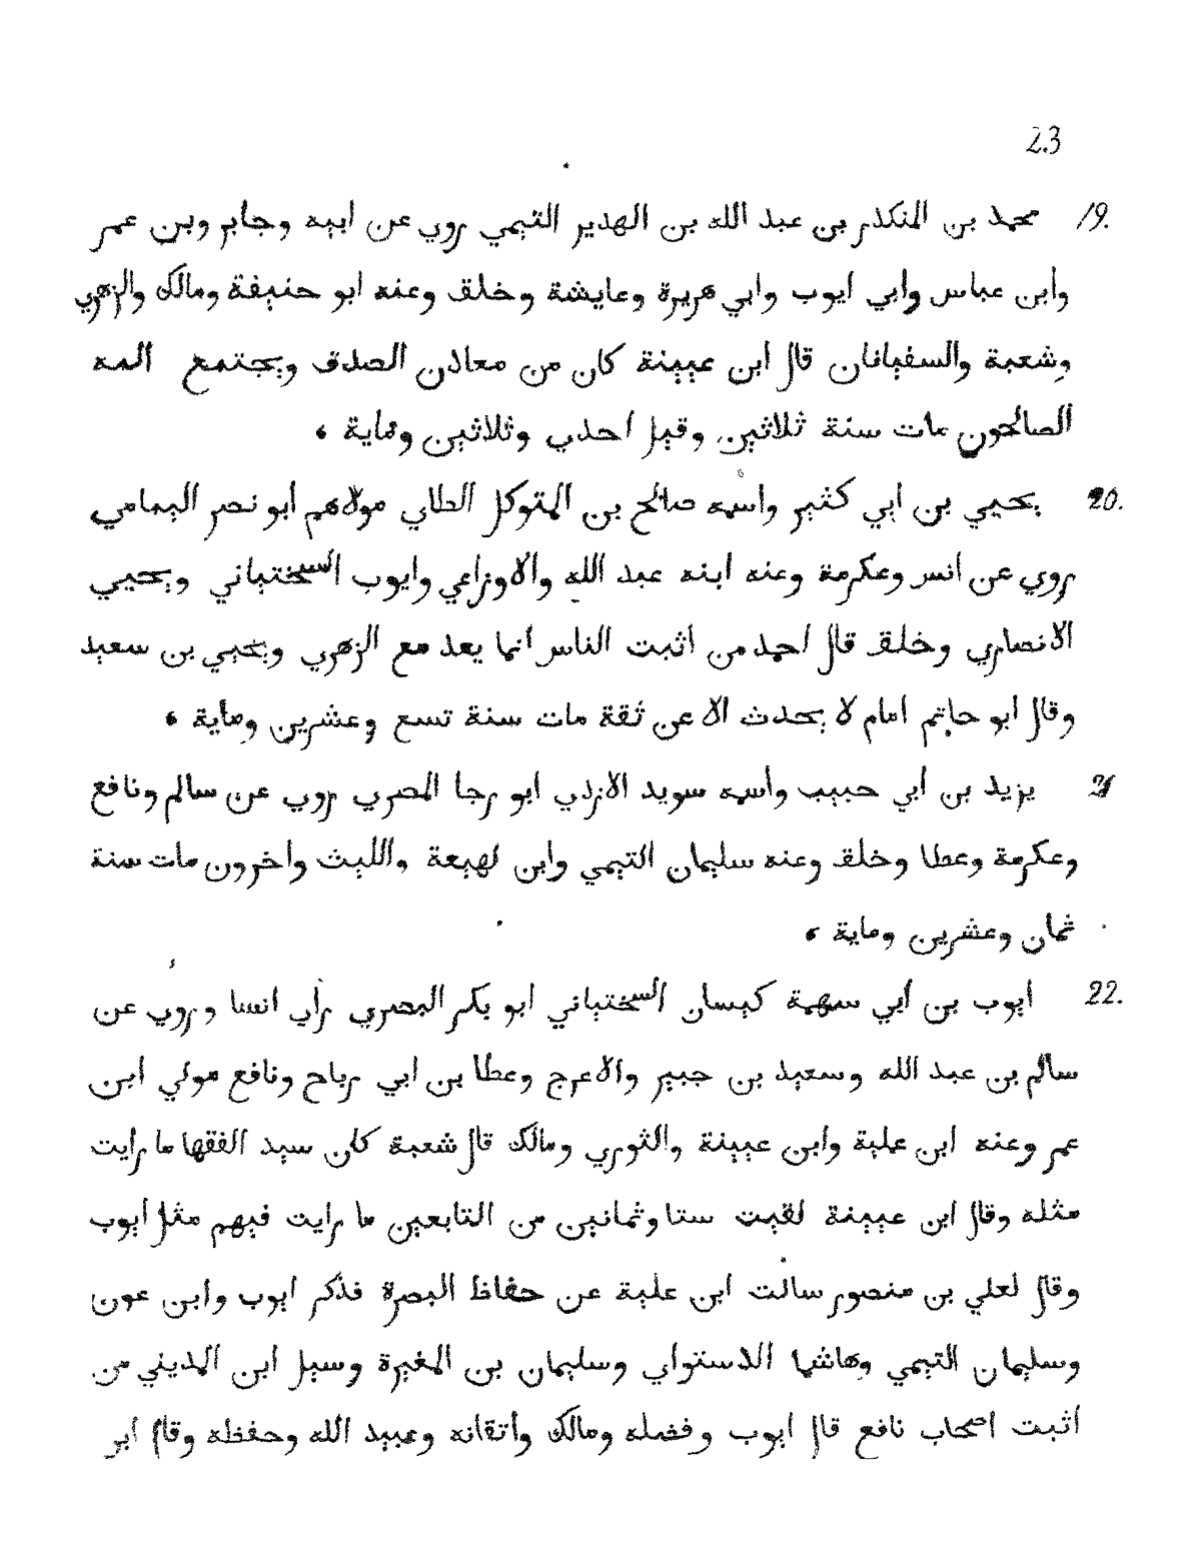 23
19. محمد بن المنكدر بن عبد الله بن الهدير التيمي روي عن ابيه وجابر وبن عمر
وابن عباس وابي ايوب وابي هريرة وعايشة وخلق وعنه ابو حنيفة ومالك والزهري
وشعبة والسفيانان قال ابن عيينة كان من معادن الصدق ويجتمع اليه
الصالحون مات سنة ثلاثين وقيل احدي وثلاثين وماية ،
20. يحيي بن ابي كثير واسمه صالح بن المتوكل الطاي مولاهم ابو نصر اليمامي
روي عن انس وعكرمة وعنه ابنه عبد الله والاوزاعي وايوب السختياني ويحيي
الانصاري وخلق قال احمد من اثبت الناس انما يعد مع الزهري ويحيي بن سعيد
وقال ابو حاتم امام لا يحدث الا عن ثقة مات سنة تسع وعشرين وماية ،
21 يزيد بن ابي حبيب واسمه سويد الازدي ابو رجا المصري روي عن سالم ونافع
وعكرمة وعطا وخلق وعنه سليمان التيمي وابن لهيعة والليث واخرون مات سنة
ثمان وعشرين وماية ،
22. ايوب بن ابي سهمة كيسان السختياني ابو بكر البصري راي انسا وروي عن
سالم بن عبد الله وسعيد بن جبير والاعرج وعطا بن ابي رباح ونافع مولي ابن
عمر وعنه ابن علية وابن عيينة والثوري ومالك قال شعبة كان سيد الفقها ما رايت
مثله وقال ابن عيينة لقيت ستا وثمانين من التابعين ما رايت فيهم مثل ايوب
وقال لعلي بن منصور سالت ابن علية عن حفاظ البصرة فذكر ايوب وابن عون
وسليمان التيمي وهاشما الدستواي وسليمان بن المغيرة وسيل ابن المديني من
اثبت اصحاب نافع قال ايوب وفضله ومالك واتقانه وعبيد الله وحفظه وقال ابن